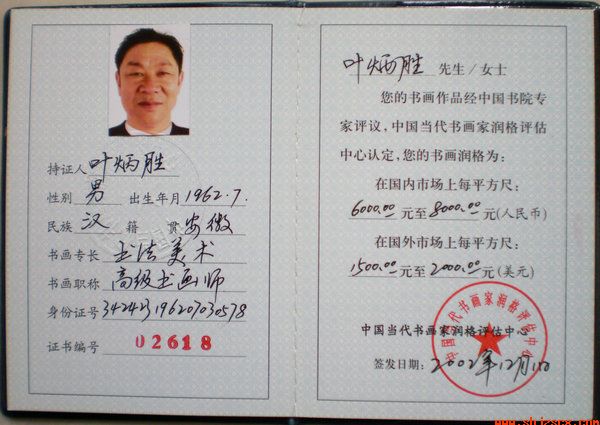 持证人 叶炳胜
性别 男 出生年月 1962.7.
民族 汉 籍贯 安徽
书画专长 书法美术
书画职称 高级书画师
身份证号 342423196207030578
证书编号 02618
叶炳胜 先生/女士
您的书画作品经中国书院专
家评议,中国当代书画家润格评估
中心认定,您的书画润格为:
在国内市场上每平方尺:
6000.00元至8000.00元(人民币)
在国外市场上每平方尺:
1500.00元至2000.00元(美元)
中国当代书画家润格评估中心
中国当代书画家润格评估中心
签发日期: 2002年12月